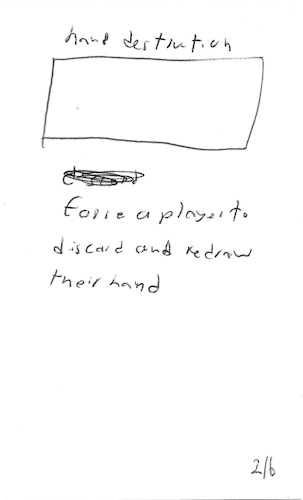 hand destrution
Force a player to
discard and redraw
their hand
2/6